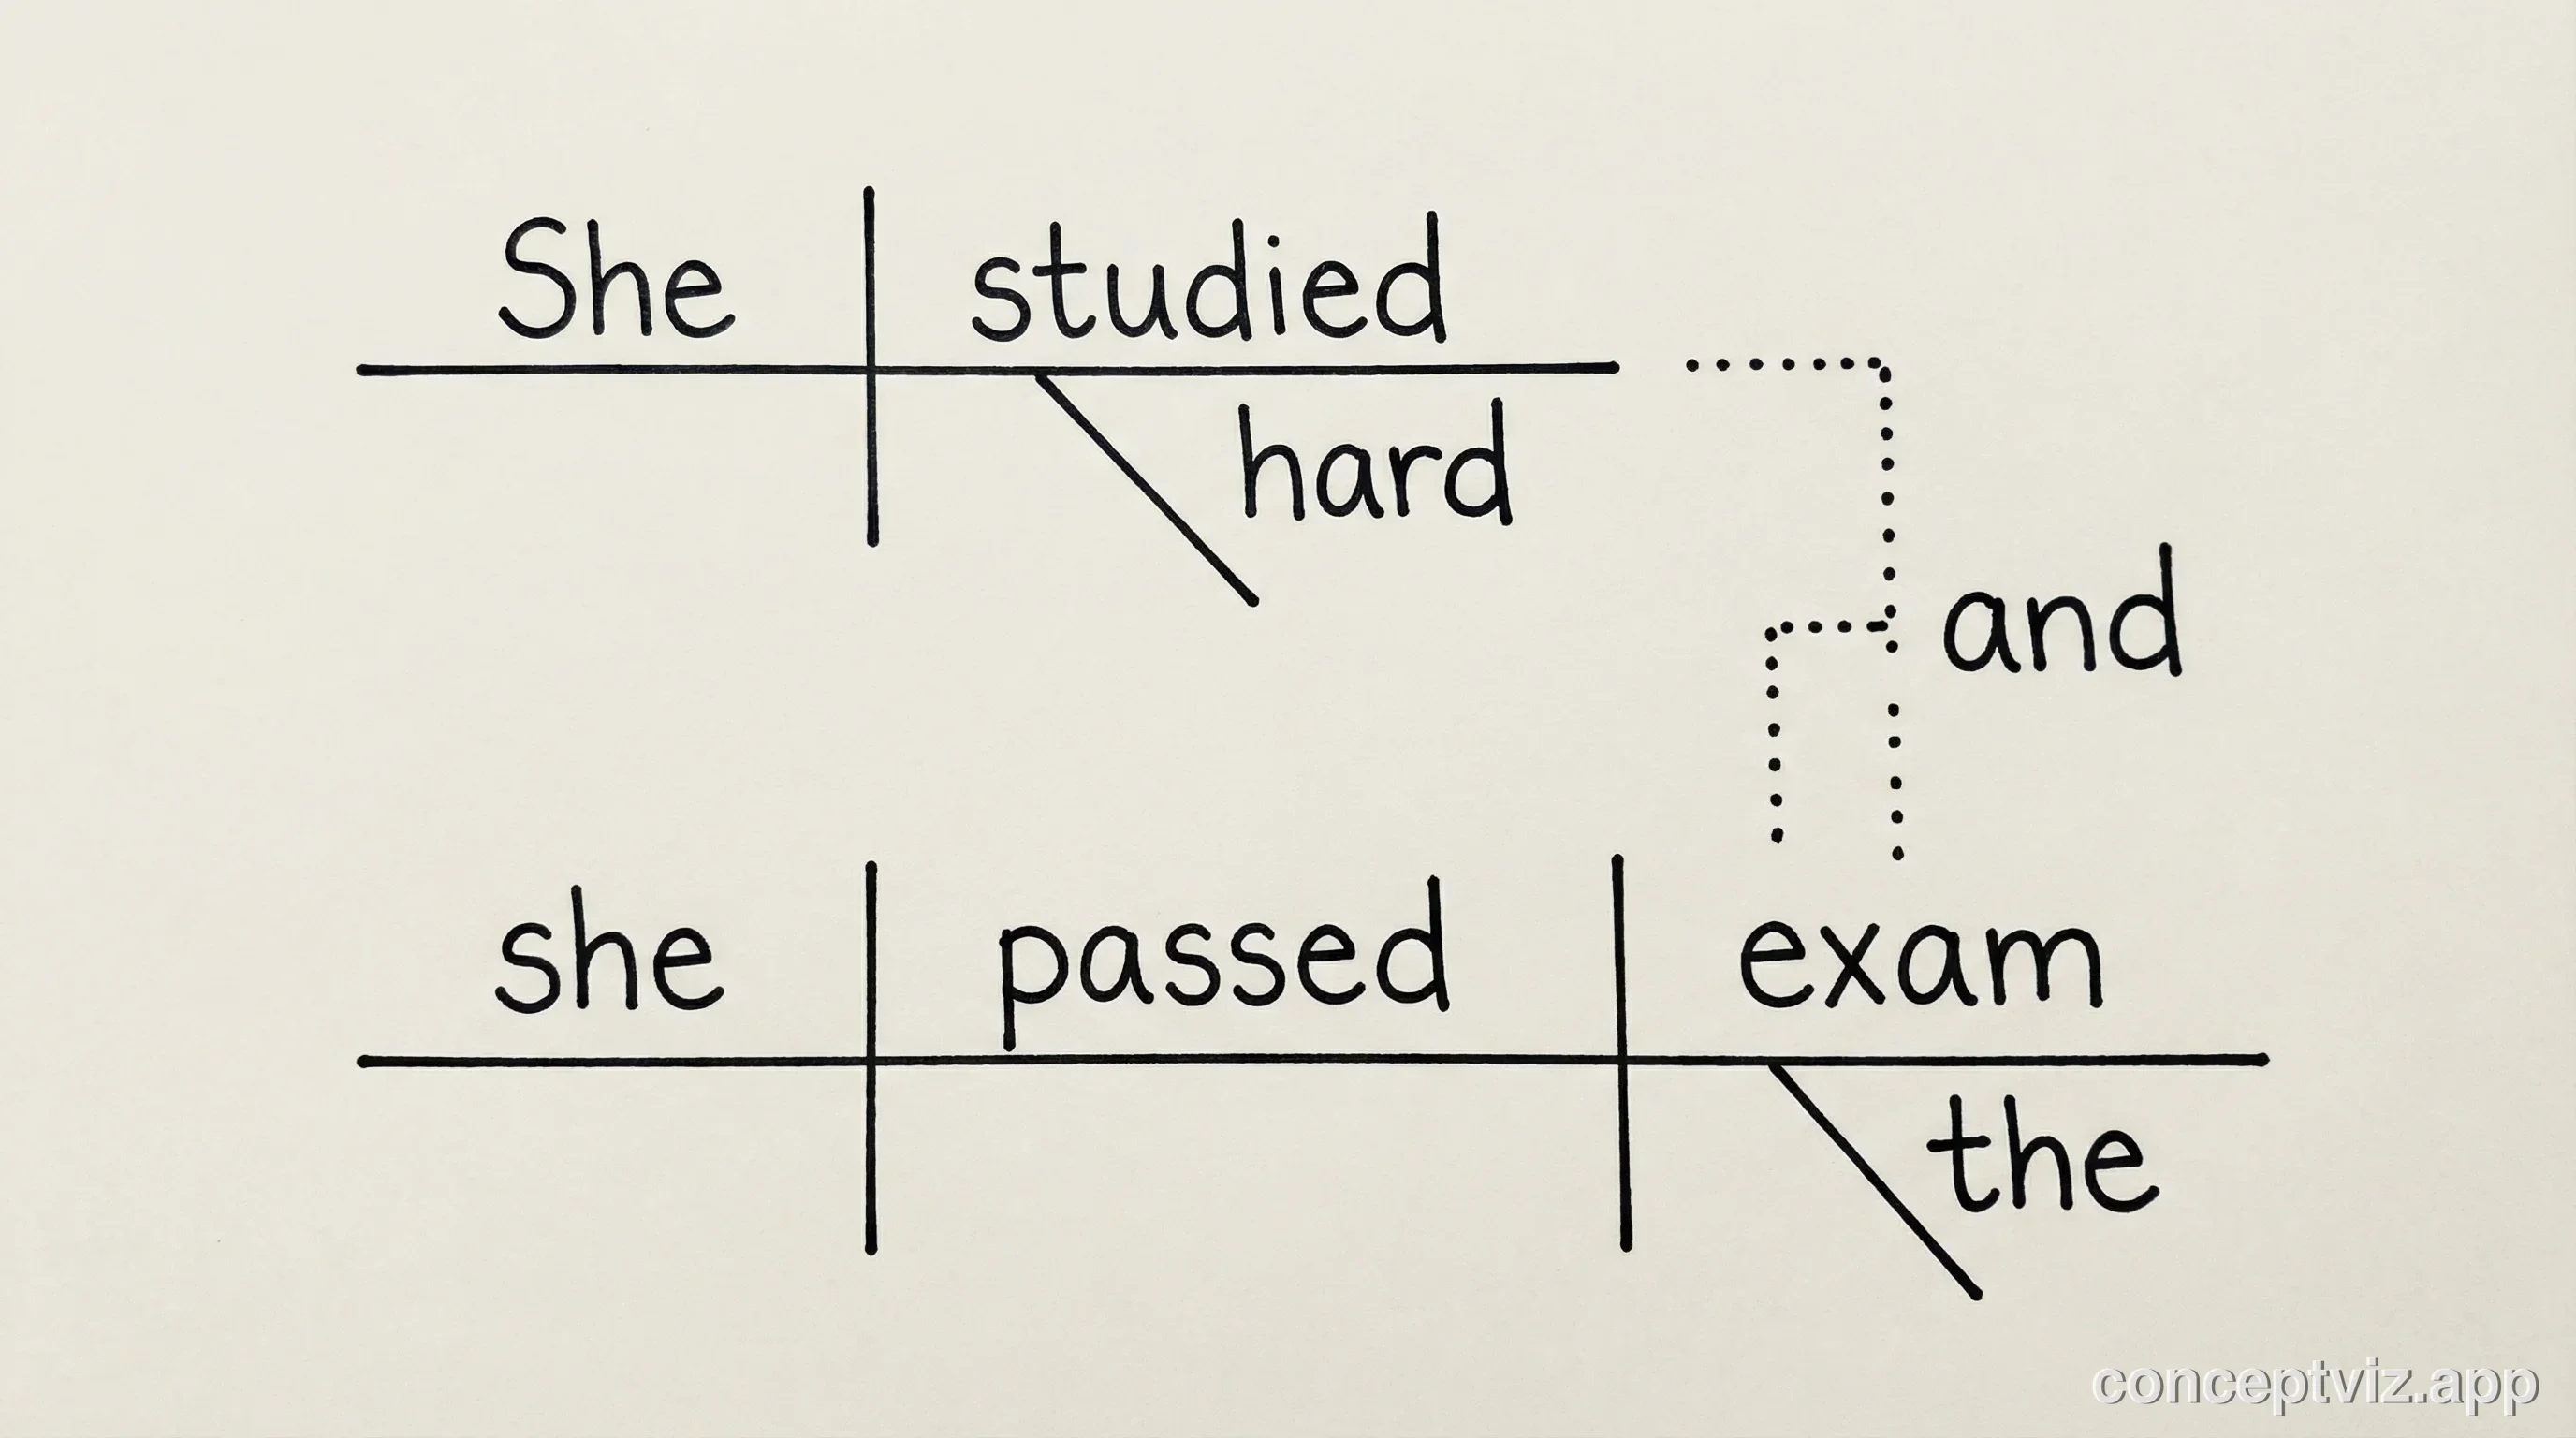 She studied
hard
and
she passed exam
the
conceptviz.app